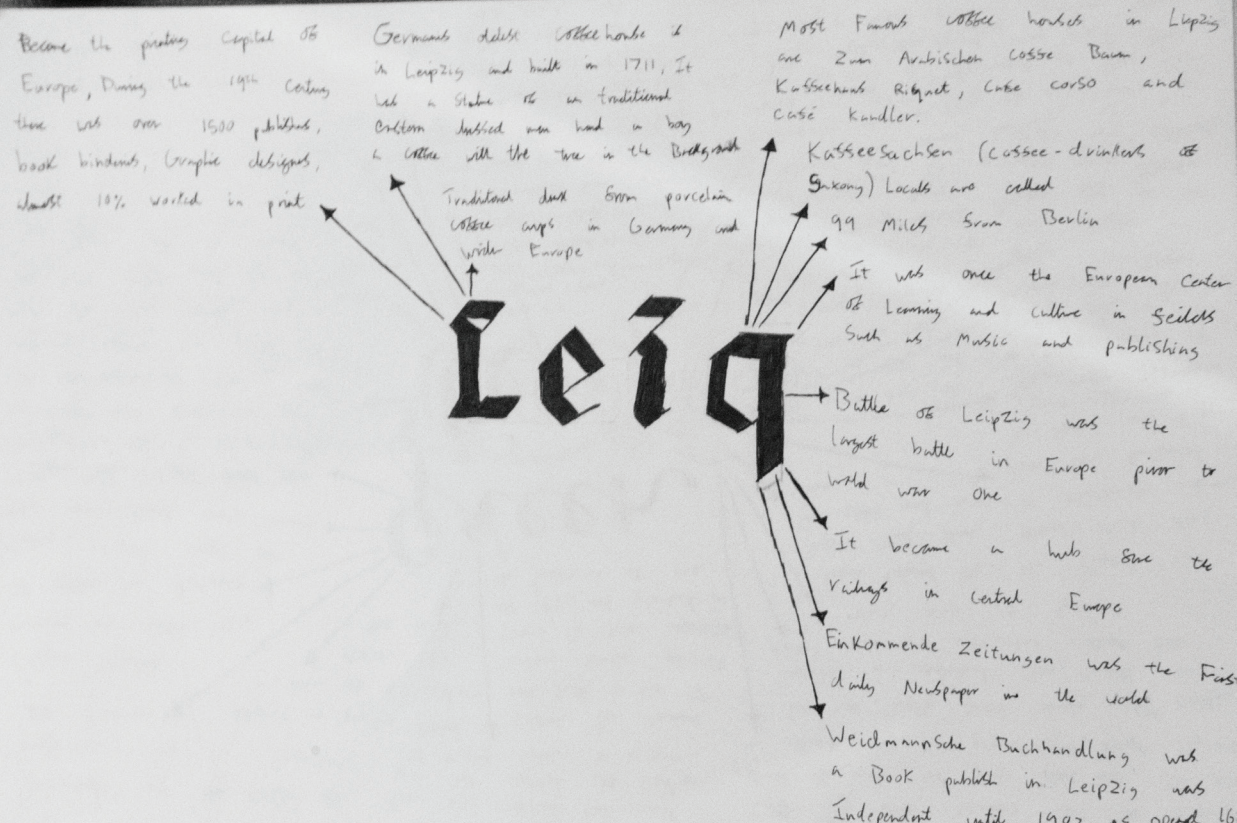 Became the printing Capital of
Europe, During the 19th Century
there was over 1500 publishers,
book binders, Graphic designers,
almost 10% worked in print
Germanys oldest coffee house is
in Leipzig and built in 1711, It
has a Statue of an traditional
dressed man hand a boy
a coffee with the tree in the Background
Traditional drink from porcelain
coffee cups in Germany and
wider Europe
Most Famous coffee houses in Liepzig
are Zum Arabischen Coffe Baum,
Kaffeehaus Riquet, Cafe corso and
Café Kandler.
Kaffeesachsen (Coffee-drinkers of
Saxony) Locals are called
99 Miles from Berlin
It was once the European Center
of Learning and culture in feilds
Such as Music and publishing
Leiq
Battle of Leipzig was the
largest battle in Europe piror to
world war one
It became a hub for the
railways in central Europe
Einkommende Zeitungen was the First
daily Newspaper in the world
Weidmannsche Buchhandlung was
a Book publish in Leipzig was
Independent until